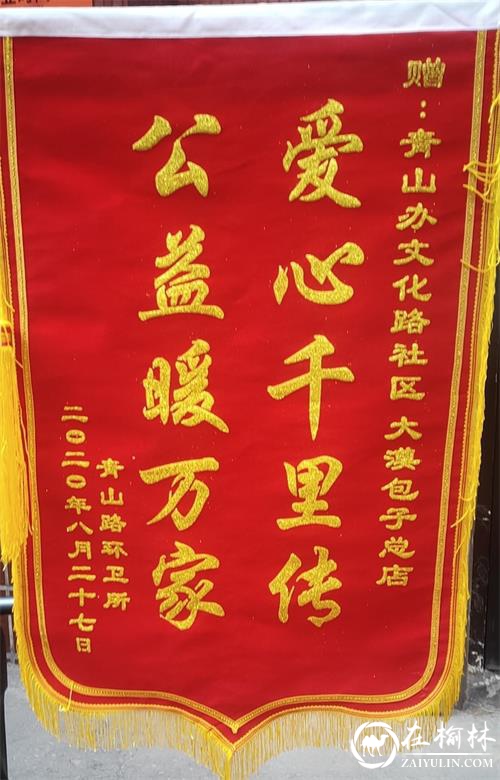 赠：青山办文化路社区 大漠包子总店
爱心千里传
公益暖万家
青山路环卫所
二〇二〇年八月二十七日
在榆林
ZAIYULIN.COM